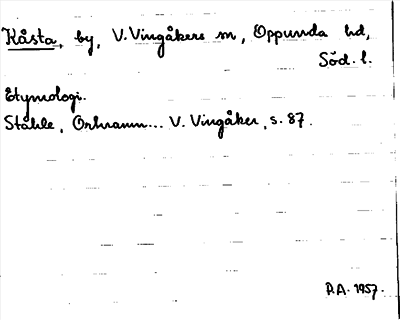 Kåsta, by, V. Vingåkers sn, Oppunda hd,
Söd. l.
Etymologi.
Ståhle, Ortnamn... V. Vingåker, s. 87.
D.A. 1957.